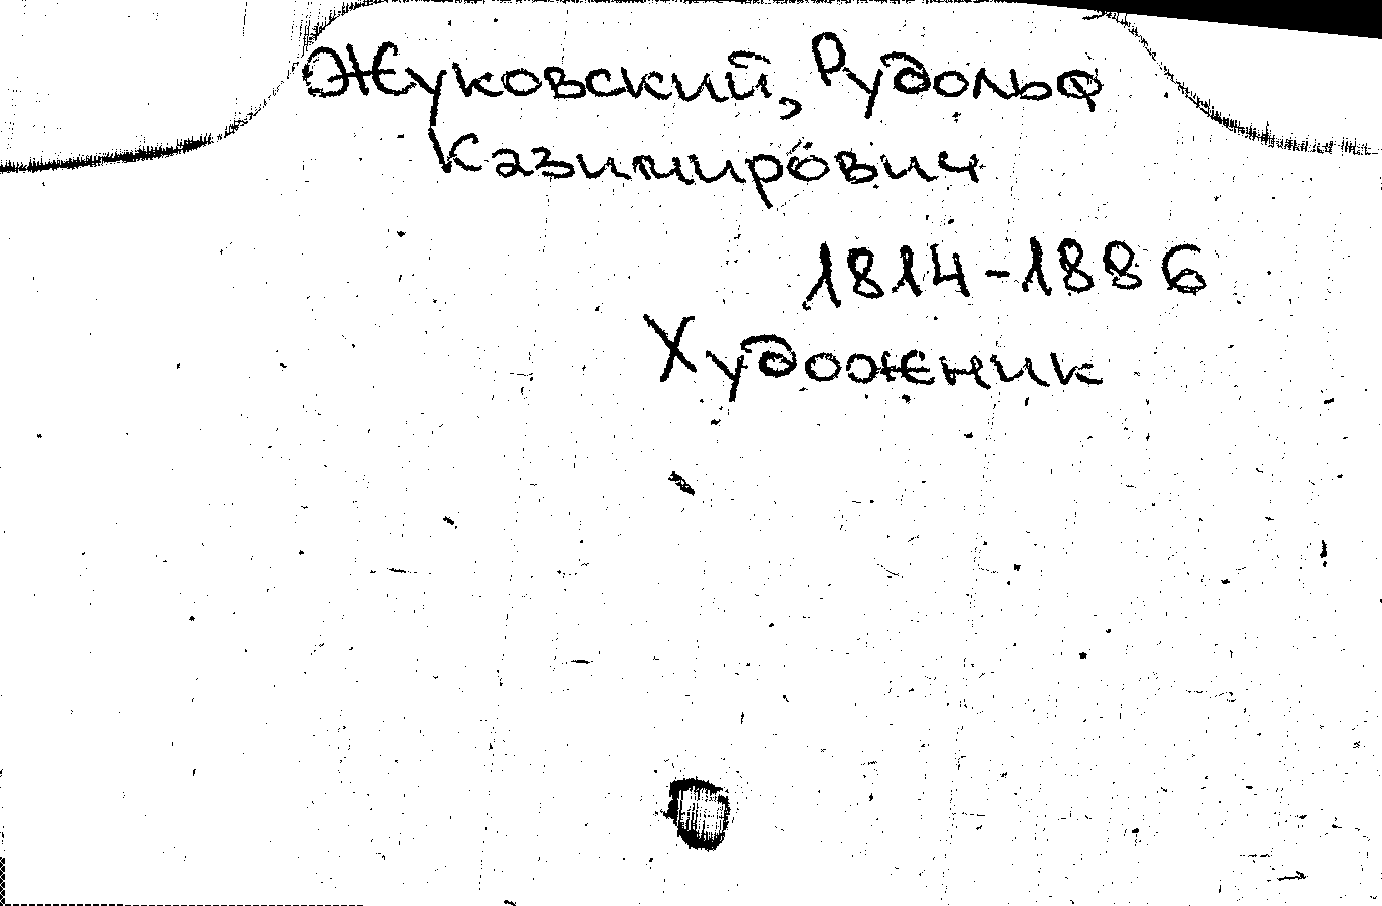 Жуковский, Рудольф
Казимирович
1814-1886
Художник